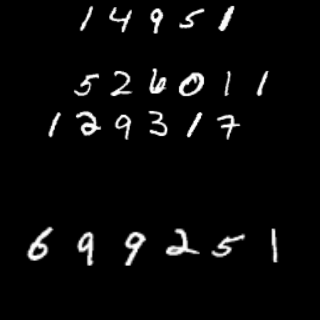 14951
526011
129317
699251